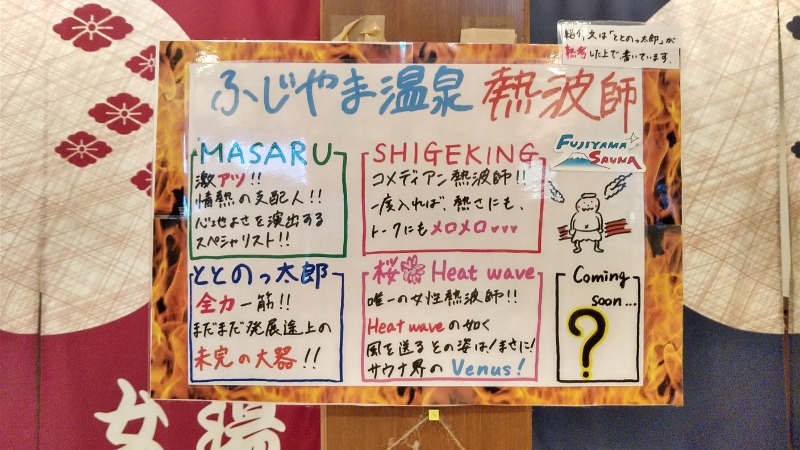 紹介文は「ととのっ太郎」が
熟考した上で、書いています。
ふじやま温泉 熱波師
FUJIYAMA
SAUNA
MASARU
激アツ!!
情熱の支配人!!
心地よさを演出する
スペシャリスト!!
SHIGEKING
コメディアン熱波師!!
一度入れば、熱さにも、
トークにもメロメロ♥♥♥
ととのっ太郎
全力一筋!!
まだまだ発展途上の
未完の大器!!
桜🌸Heat wave
唯一の女性熱波師!!
Heat waveの如く
風を送るその姿は!まさに!
サウナ界のVenus!
Coming
soon...
?
女湯